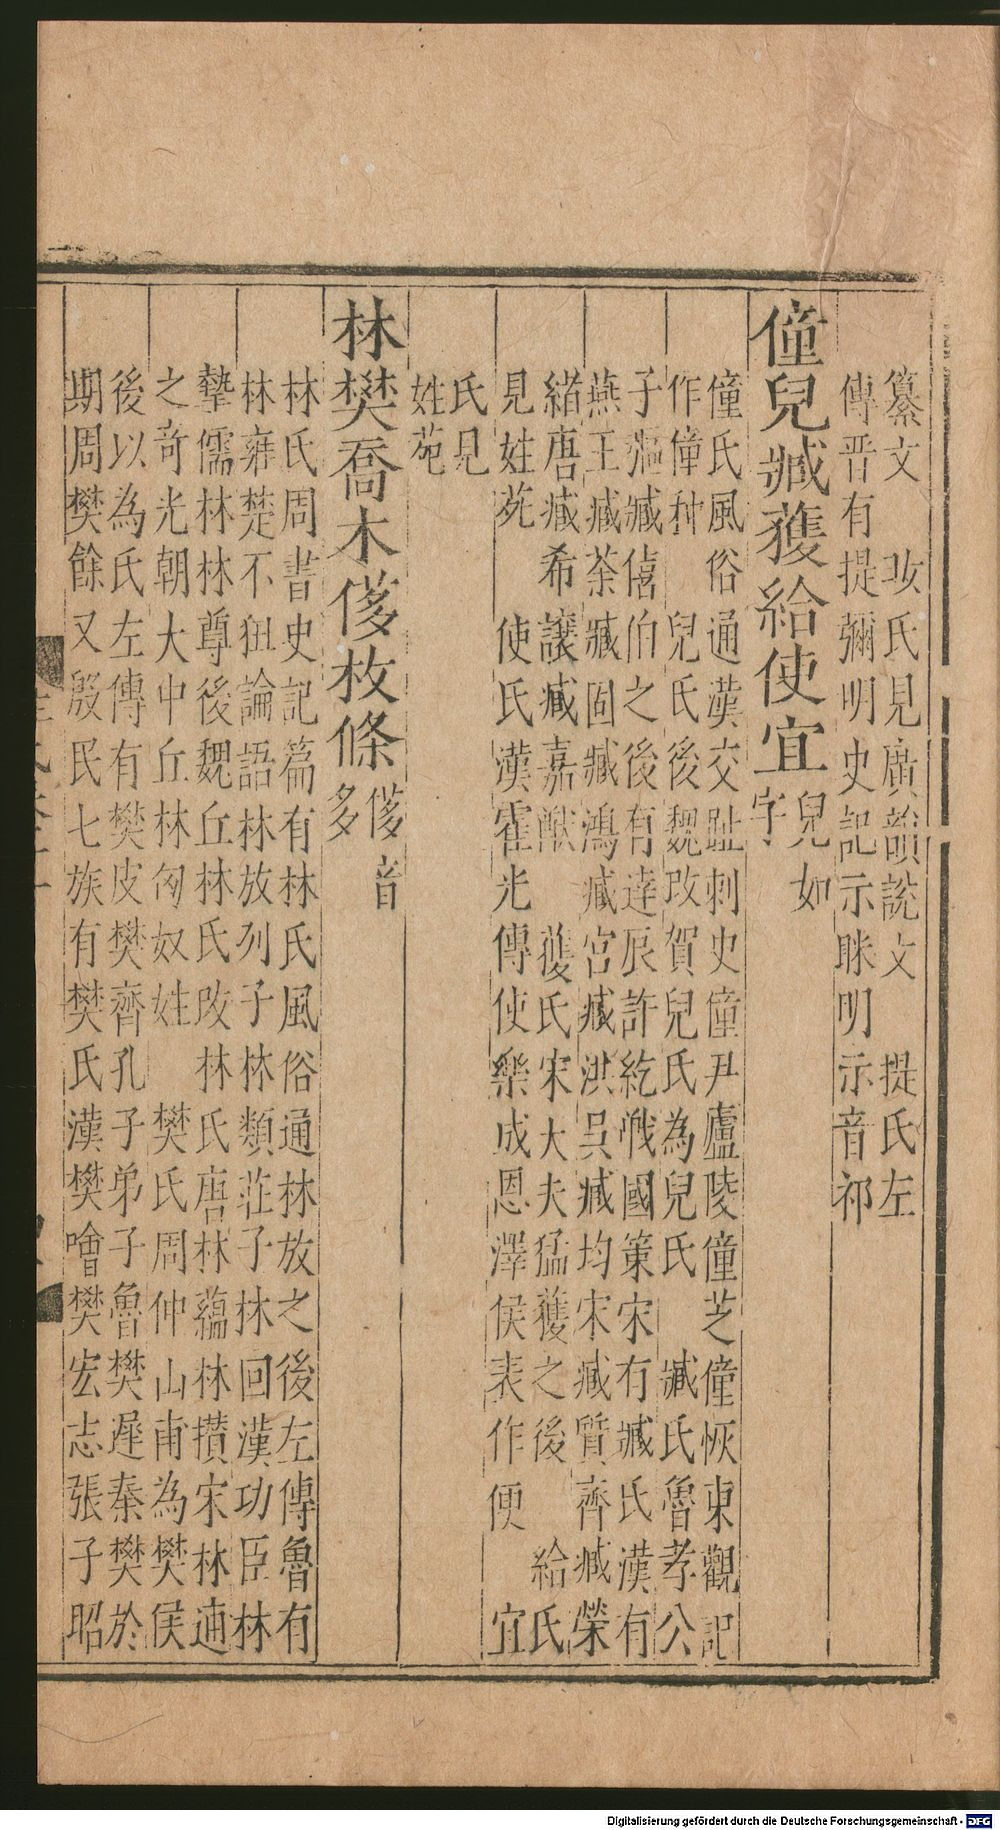 纂文　攻氏見廣韻說文　提氏左
傳晉有提彌明史記示眯明示音祁
僮兒臧獲給使宜兒如
字
僮氏風俗通漢交趾刺史僮尹廬陵僮芝僮恢東觀記
作僮种　兒氏後魏改賀兒氏為兒氏　臧氏魯孝公
子彄臧僖伯之後有達辰許紇戰國策宋有臧氏漢有
燕王臧荼臧固臧鴻臧宮臧洪吳臧均宋臧質齊臧榮
緒唐臧希讓臧嘉猷　獲氏宋大夫猛獲之後　給氏
見姓苑　使氏漢霍光傳使樂成恩澤侯表作便　宜
氏見
姓苑
林樊喬木侈枚條侈音
多
林氏周書史記篇有林氏風俗通林放之後左傳魯有
林雍楚不狃論語林放列子林類莊子林回漢功臣林
摯儒林林尊後魏丘林氏改林氏唐林蘊林攢宋林逋
之奇光朝大中丘林匈奴姓　樊氏周仲山甫為樊侯
後以為氏左傳有樊皮樊齊孔子弟子魯樊遲秦樊於
期周樊餘又殷民七族有樊氏漢樊噲樊宏志張子昭
Digitalisierung gefördert durch die Deutsche Forschungsgemeinschaft - DFG